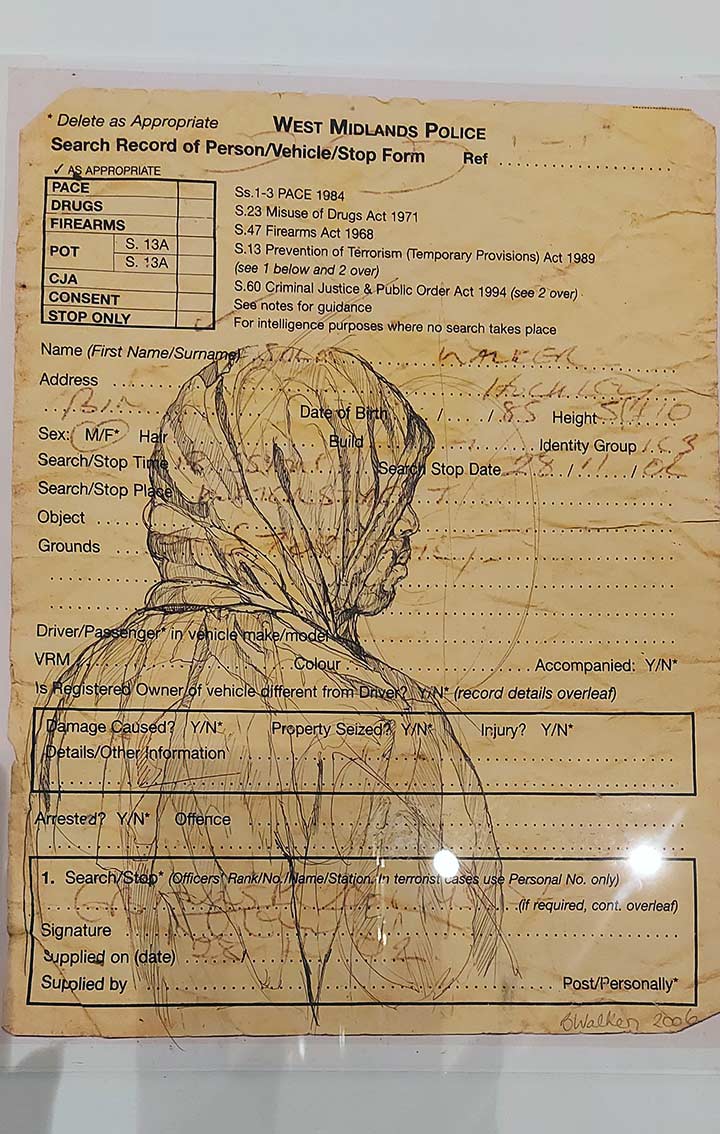 * Delete as Appropriate
WEST MIDLANDS POLICE
Search Record of Person/Vehicle/Stop Form Ref
✓ AS APPROPRIATE
PACE
DRUGS
FIREARMS
POT S. 13A
S. 13A
CJA
CONSENT
STOP ONLY
Ss.1-3 PACE 1984
S.23 Misuse of Drugs Act 1971
S.47 Firearms Act 1968
S.13 Prevention of Terrorism (Temporary Provisions) Act 1989
(see 1 below and 2 over)
S.60 Criminal Justice & Public Order Act 1994 (see 2 over)
See notes for guidance
For intelligence purposes where no search takes place
Name (First Name/Surname) WALKER
Address
Date of Birth / / 85 Height
Sex: M/F* Hair Build Identity Group
Search/Stop Time Search Stop Date 28 / 11 /
Search/Stop Place
Object
Grounds
Driver/Passenger* in vehicle make/model
VRM Colour Accompanied: Y/N*
Is Registered Owner of vehicle different from Driver? Y/N* (record details overleaf)
Damage Caused? Y/N* Property Seized? Y/N* Injury? Y/N*
Details/Other Information
Arrested? Y/N* Offence
1. Search/Stop* (Officers' Rank/No./Name/Station. In terrorist cases use Personal No. only)
(if required, cont. overleaf)
Signature
Supplied on (date)
Supplied by Post/Personally*
BWalker 2006